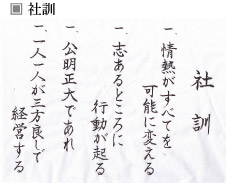 社訓
社訓
一、情熱がすべてを
可能に変える
一、志あるところに
行動が起る
一、公明正大であれ
一、一人一人が三方良しで
経営する